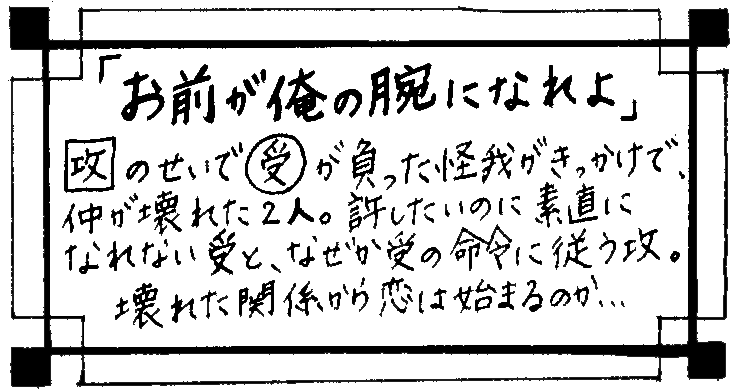 「お前が俺の腕になれよ」
攻のせいで受が負った怪我がきっかけで、
仲が壊れた2人。許したいのに素直に
なれない受と、なぜか受の命令に従う攻。
壊れた関係から恋は始まるのか…